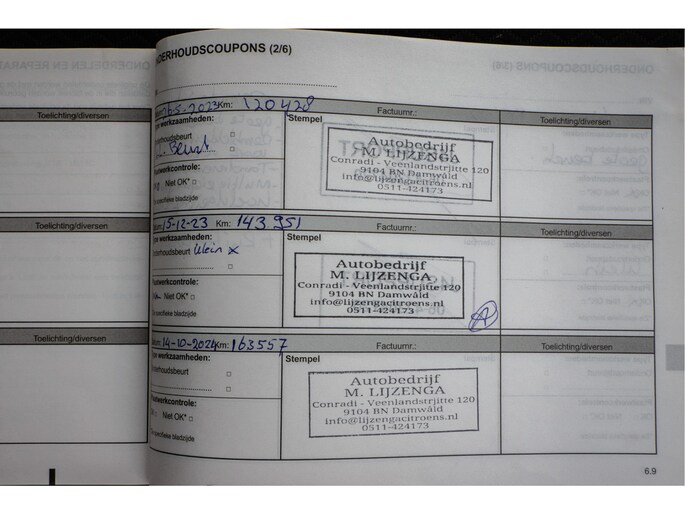 NDERHOUDSCOUPONS (2/6)
Toelichting/diversen
26-5-2023 Km: 120428
Factuurnr.:
Toelichting/diversen
werkzaamheden:
Stempel
derhoudsbeurt □
Beurt □
Autobedrijf
M. LIJZENGA
Conradi - Veenlandstrjitte 120
9104 BN Damwâld
info@lijzengacitroens.nl
0511-424173
werkcontrole:
Niet OK* □
specifieke bladzijde
Toelichting/diversen
15-12-23 Km: 143.951
Factuurnr.:
Toelichting/diversen
werkzaamheden:
Stempel
derhoudsbeurt klein x
□
Autobedrijf
M. LIJZENGA
Conradi - Veenlandstrjitte 120
9104 BN Damwâld
info@lijzengacitroens.nl
0511-424173
werkcontrole:
Niet OK* □
specifieke bladzijde
Toelichting/diversen
14-10-2024 Km: 163557
Factuurnr.:
Toelichting/diversen
werkzaamheden:
Stempel
derhoudsbeurt □
□
Autobedrijf
M. LIJZENGA
Conradi - Veenlandstrjitte 120
9104 BN Damwâld
info@lijzengacitroens.nl
0511-424173
werkcontrole:
Niet OK* □
specifieke bladzijde
6.9